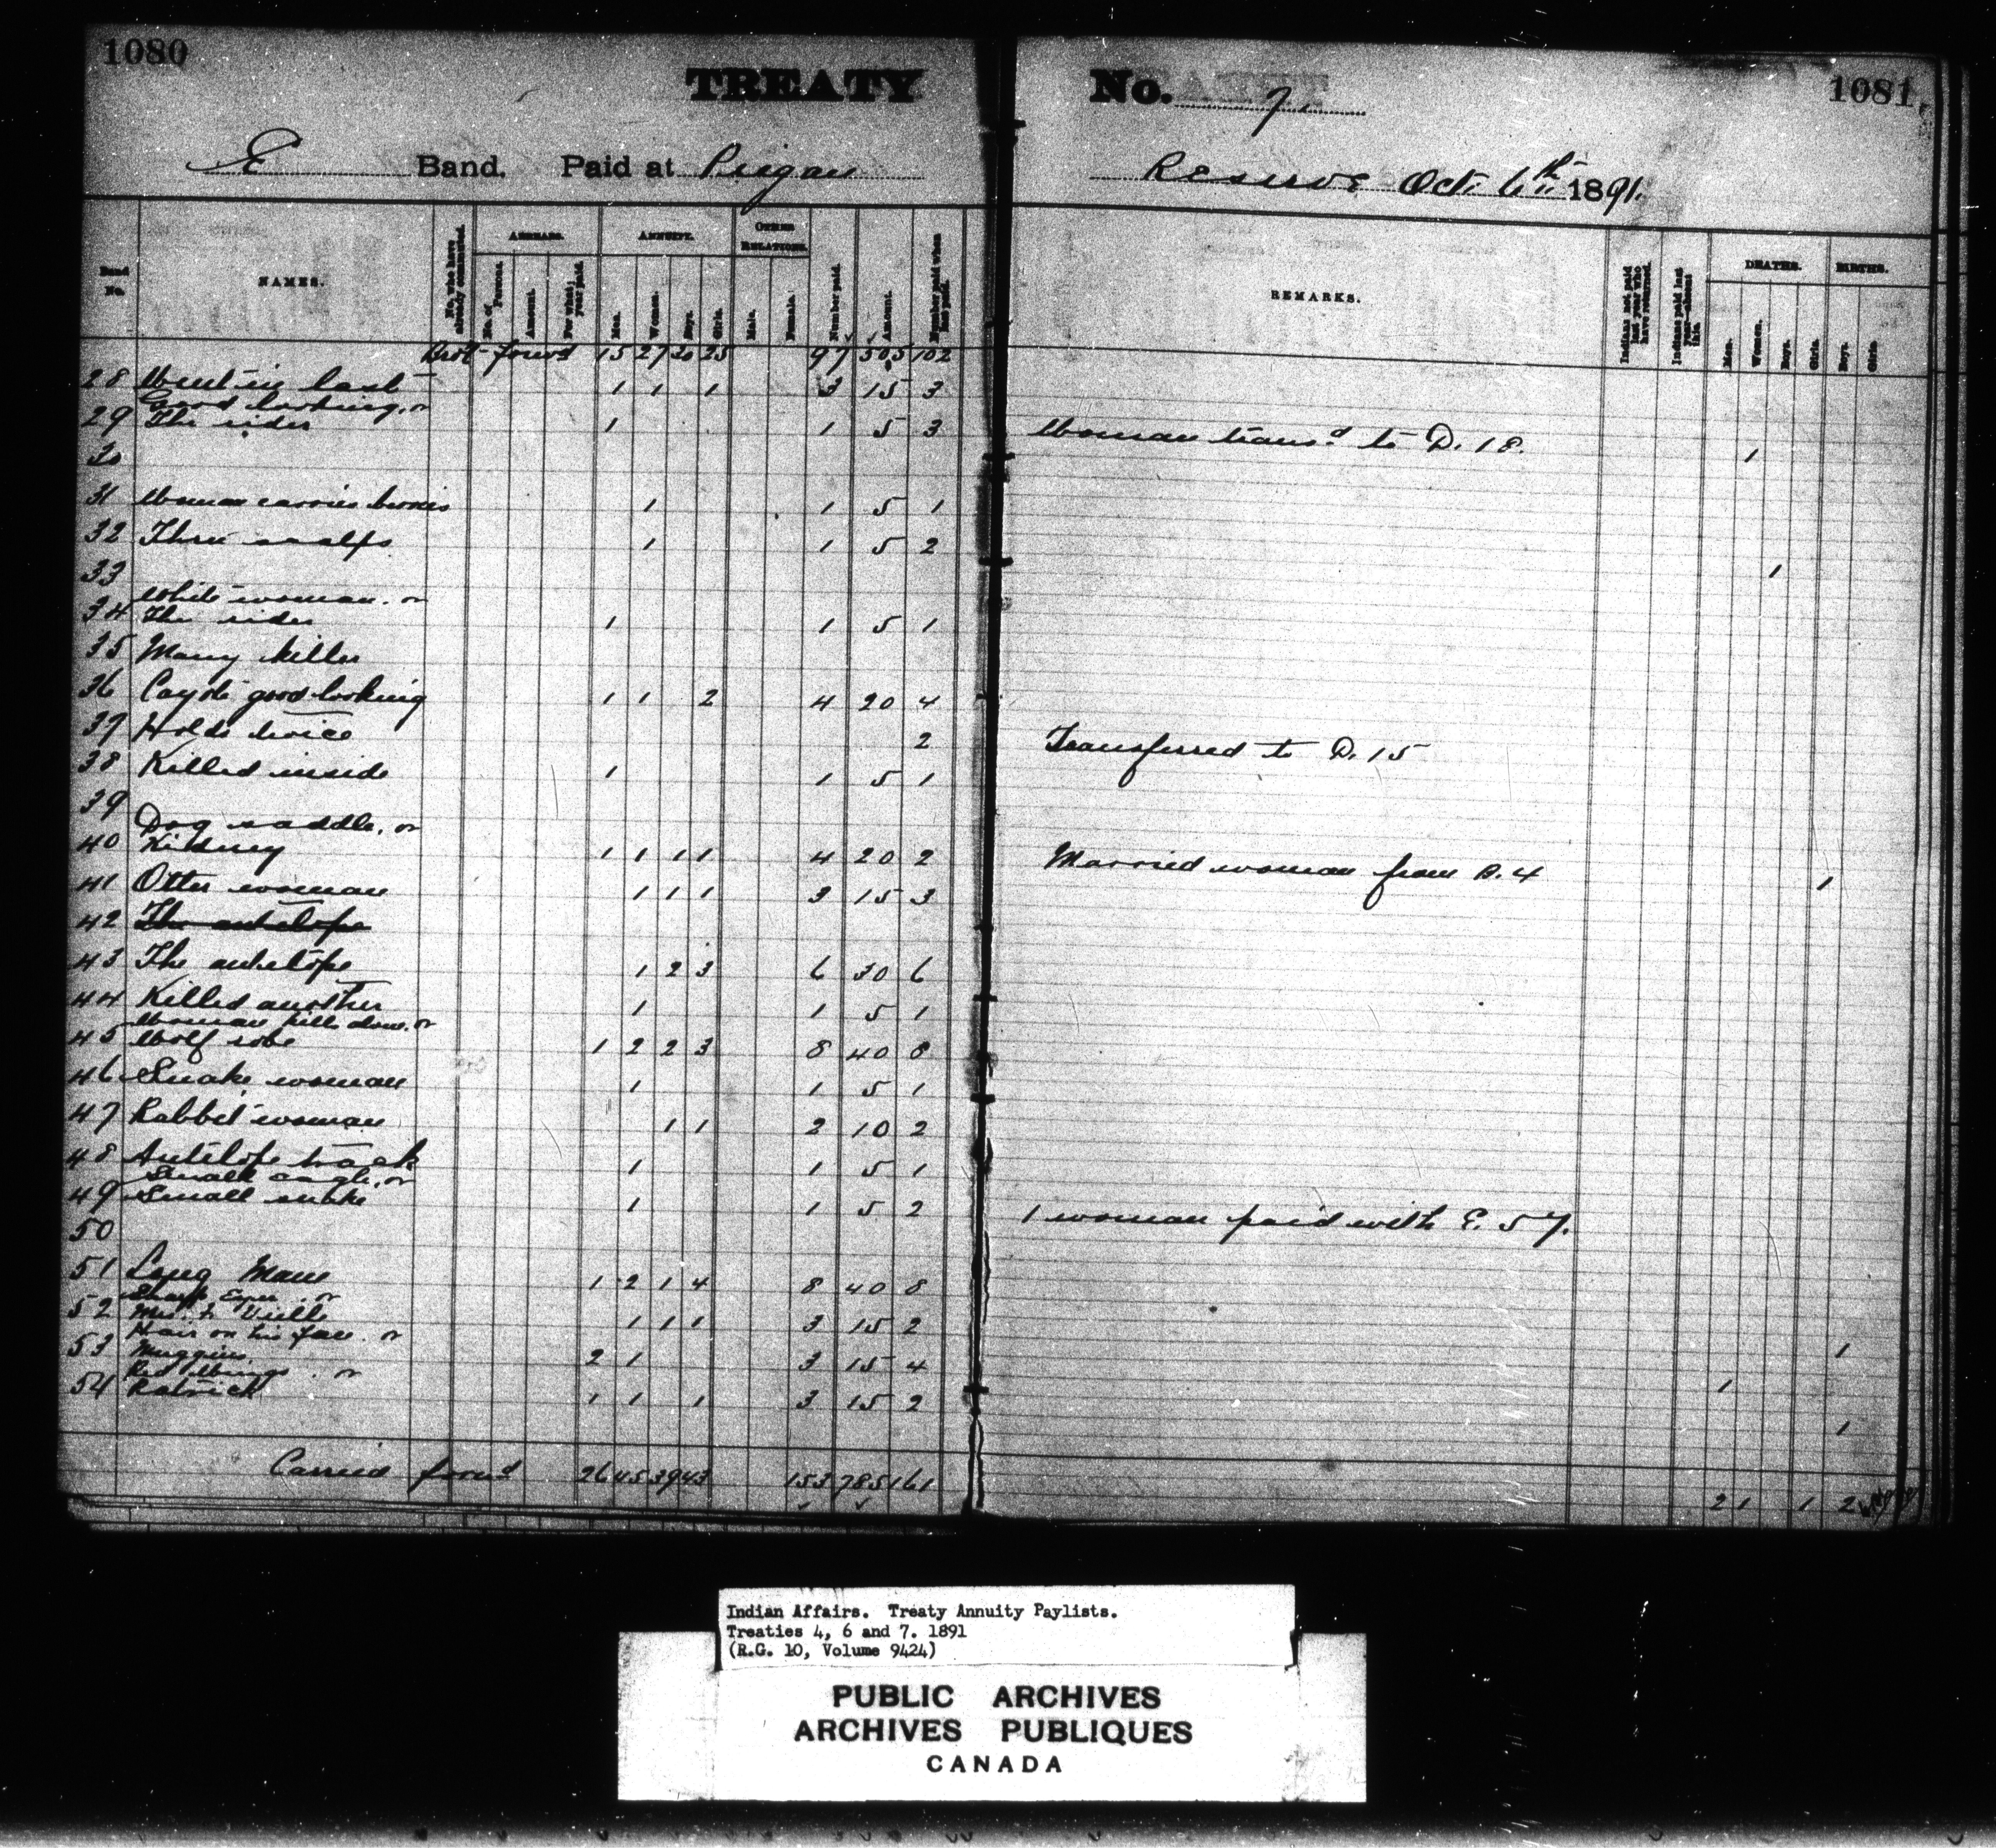 1080
TREATY No. 7.
1081
E Band. Paid at Peigan Reserve Oct. 6th 1891.
Band No.
NAMES.
No. who have already commuted.
ARREARS.
No. of Persons.
Amount.
For what year paid.
ANNUITY.
Men.
Women.
Boys.
Girls.
OTHER RELATIONS.
Male.
Female.
Number paid.
Amount.
Number paid when last paid.
REMARKS.
Indians not paid last year who have returned.
Indians paid last year—absent
DEATHS.
Men.
Women.
Boys.
Girls.
BIRTHS.
Boys.
Girls.
Brot forwd 15 27 20 25 97 505 102
28 Went in last 1 1 1 3 15 3
Good looking, or
29 The rider 1 1 5 3 Woman transd to D. 18. 1
30
31 Woman carries berries 1 1 5 1
32 Three scalps 1 1 5 2 1
33
White woman. or
34 The rider 1 1 5 1
35 Many killer
36 Cayote good looking 1 1 2 4 20 4
37 Holds twice 2 Transferred to D. 15
38 Killed inside 1 1 5 1
39
Dog saddle, or
40 Kidney 1 1 1 1 4 20 2 Married woman from B. 4 1
41 Otter woman 1 1 1 3 15 3
42 The antelope
43 The antelope 1 2 3 6 30 6
44 Killed another 1 1 5 1
Woman kills alone. or
45 Wolf robe 1 2 2 3 8 40 8
46 Snake woman 1 1 5 1
47 Rabbit woman 1 1 2 10 2
48 Antelope track 1 1 5 1
Small eagle, or
49 Small snake 1 1 5 2 1 woman paid with E. 57.
50
51 Long Mane 1 2 1 4 8 40 8
Sharp Eyes. or
52 Vielle 1 1 1 3 15 2 1
Hair on his face. or
53 Muggins 2 1 3 15 4 1
Red Wings. or
54 Patrick 1 1 1 3 15 2 1
Carried forwd 26 45 39 43 153 785 161 2 1 1 2
Indian Affairs. Treaty Annuity Paylists.
Treaties 4, 6 and 7. 1891
(R.G. 10, Volume 9424)
PUBLIC ARCHIVES
ARCHIVES PUBLIQUES
CANADA